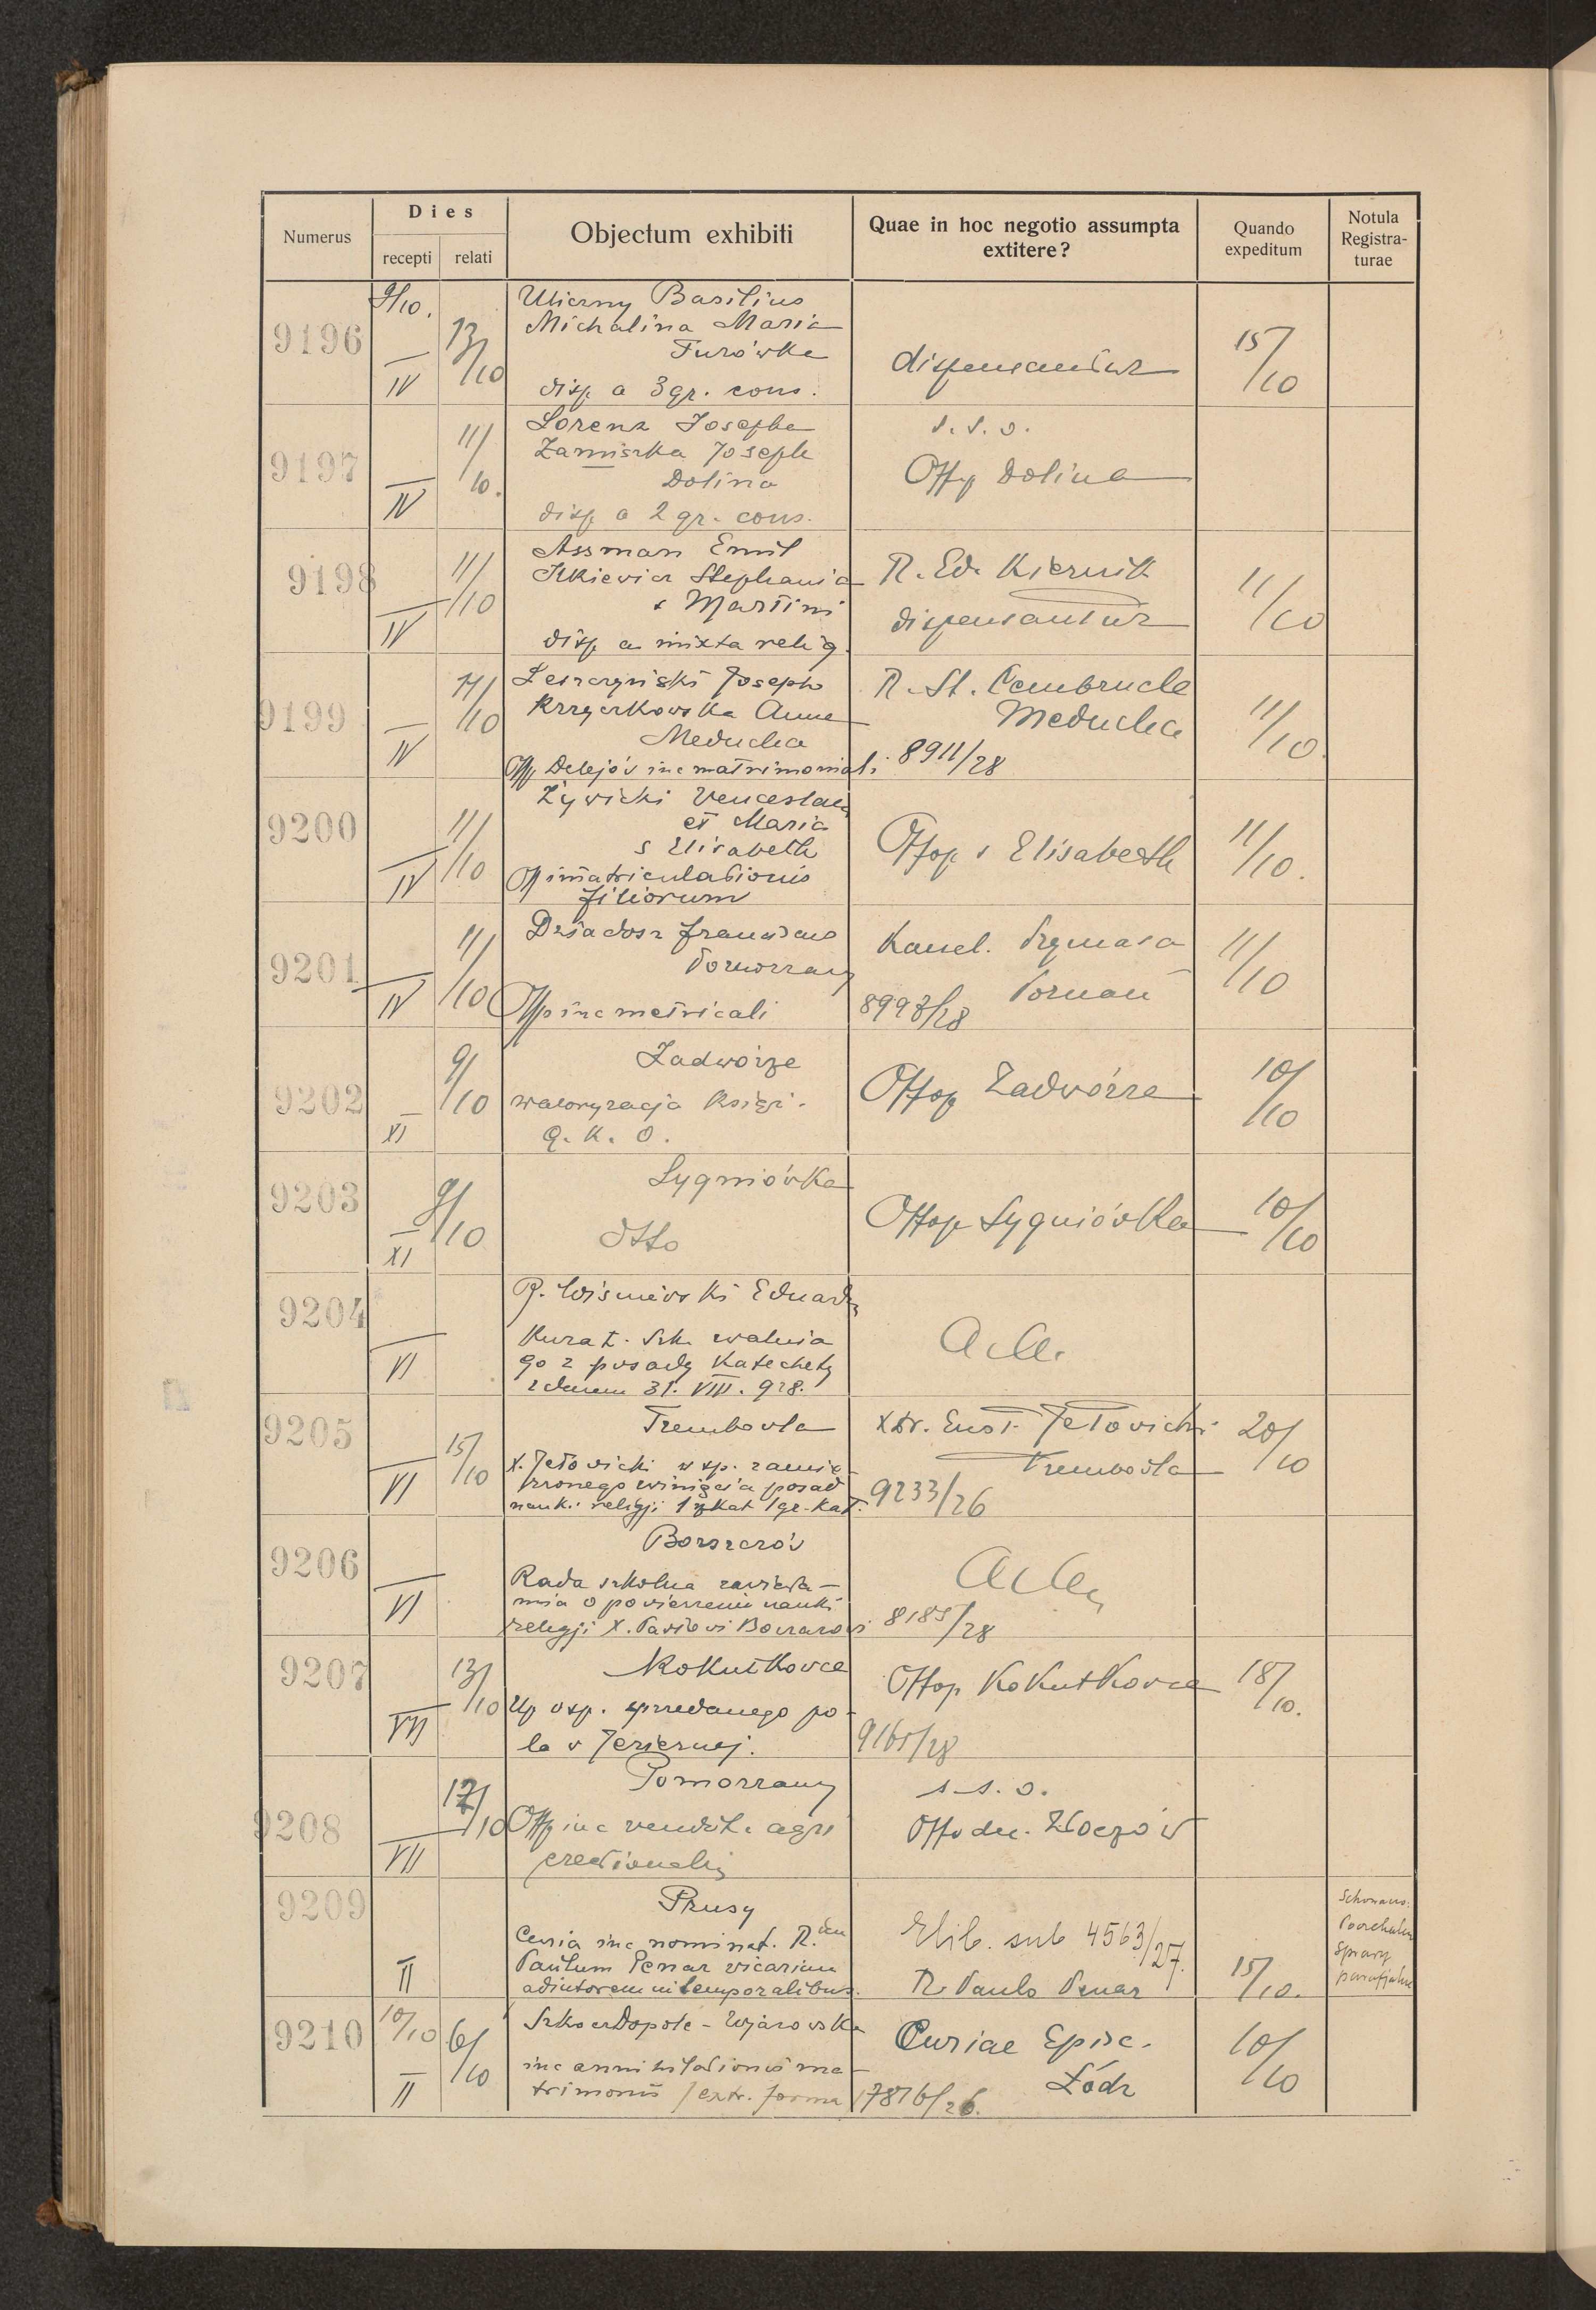 Dies
Numerus
recepti relati
Objectum exhibiti
Quae in hoc negotio assumpta
extitere?
Quando
expeditum
Notula
Registra-
turae
9196
9/10.
IV
13/10
Uliczny Basilius
Michalina Maria
Turówka
disp. a 3 gr. cons.
dispensantur
15/10
9197
IV
11/10.
Lorenz Josepha
Zamiszka Joseph
Dolina
disp a 2 gr. cons.
s. s. o.
Offp Dolina
9198
IV
11/10
Assman Emil
Stephania
s Martini
disp a mixta relig.
R. Ed. Kiernik
dispensantur
11/10
9199
IV
11/10
Leszczyński Joseph
Krzyczkowska Anna
Meducha
Offp Delejów inc matrimoniali
R. St. Cembruch
Meducha
8911/28
11/10.
9200
IV
11/10
Żywicki Venceslaus
et Maria
s Elisabeth
Offp immatriculationis
filiorum
Offop s Elisabeth
11/10.
9201
IV
11/10
Dziadosz
Pomorzany
Offp inc metricali
Kancel. Prymasa
Poznań
8993/28
11/10
9202
XI
9/10
Zadwórze
waloryzacja Książ.
G. K. O.
Offop Zadwórze
10/10
9203
XI
9/10
Sygniówka
dtto
Offop Sygniówka
10/10
9204
VI
R. Wiśniewski Eduard
Kurat. Szk. zwalnia
go z posady Katechety
z dniem 31. VIII. 928.
Acta.
9205
VI
15/10
Trembowla
X. Jełowicki w sp. zamie-
rzonego zwinięcia posad
nauki religji rz kat / gr-kat.
X Dr. Eust. Jełowicki
Trembowla
9233/26
20/10
9206
VI
Borszczów
Rada szkolna zawiada-
mia o powierzeniu nauki
religji X.
Acta
8185/28
9207
VII
13/10
Kokutkowce
Up osp. sprzedanego po-
la w Jeziernej.
Offop Kokutkowce
9165/28
18/10.
9208
VII
12/10
Pomorzany
Offp inc vendit. agri
erectionalis
s. s. o.
Offo dec. Złoczów
9209
II
Prusy
Curia inc nominat. R.dum
Paulum Penar vicarium
adiutorem in temporalibus.
Exhib. sub 4563/27.
R. Paulo Penar
15/10.
sprawy
parafjalne
9210
10/10
II
6/10
inc annihilationis ma-
trimonii / extr. forma
Curiae Episc.
Łódz
7876/26.
10/10